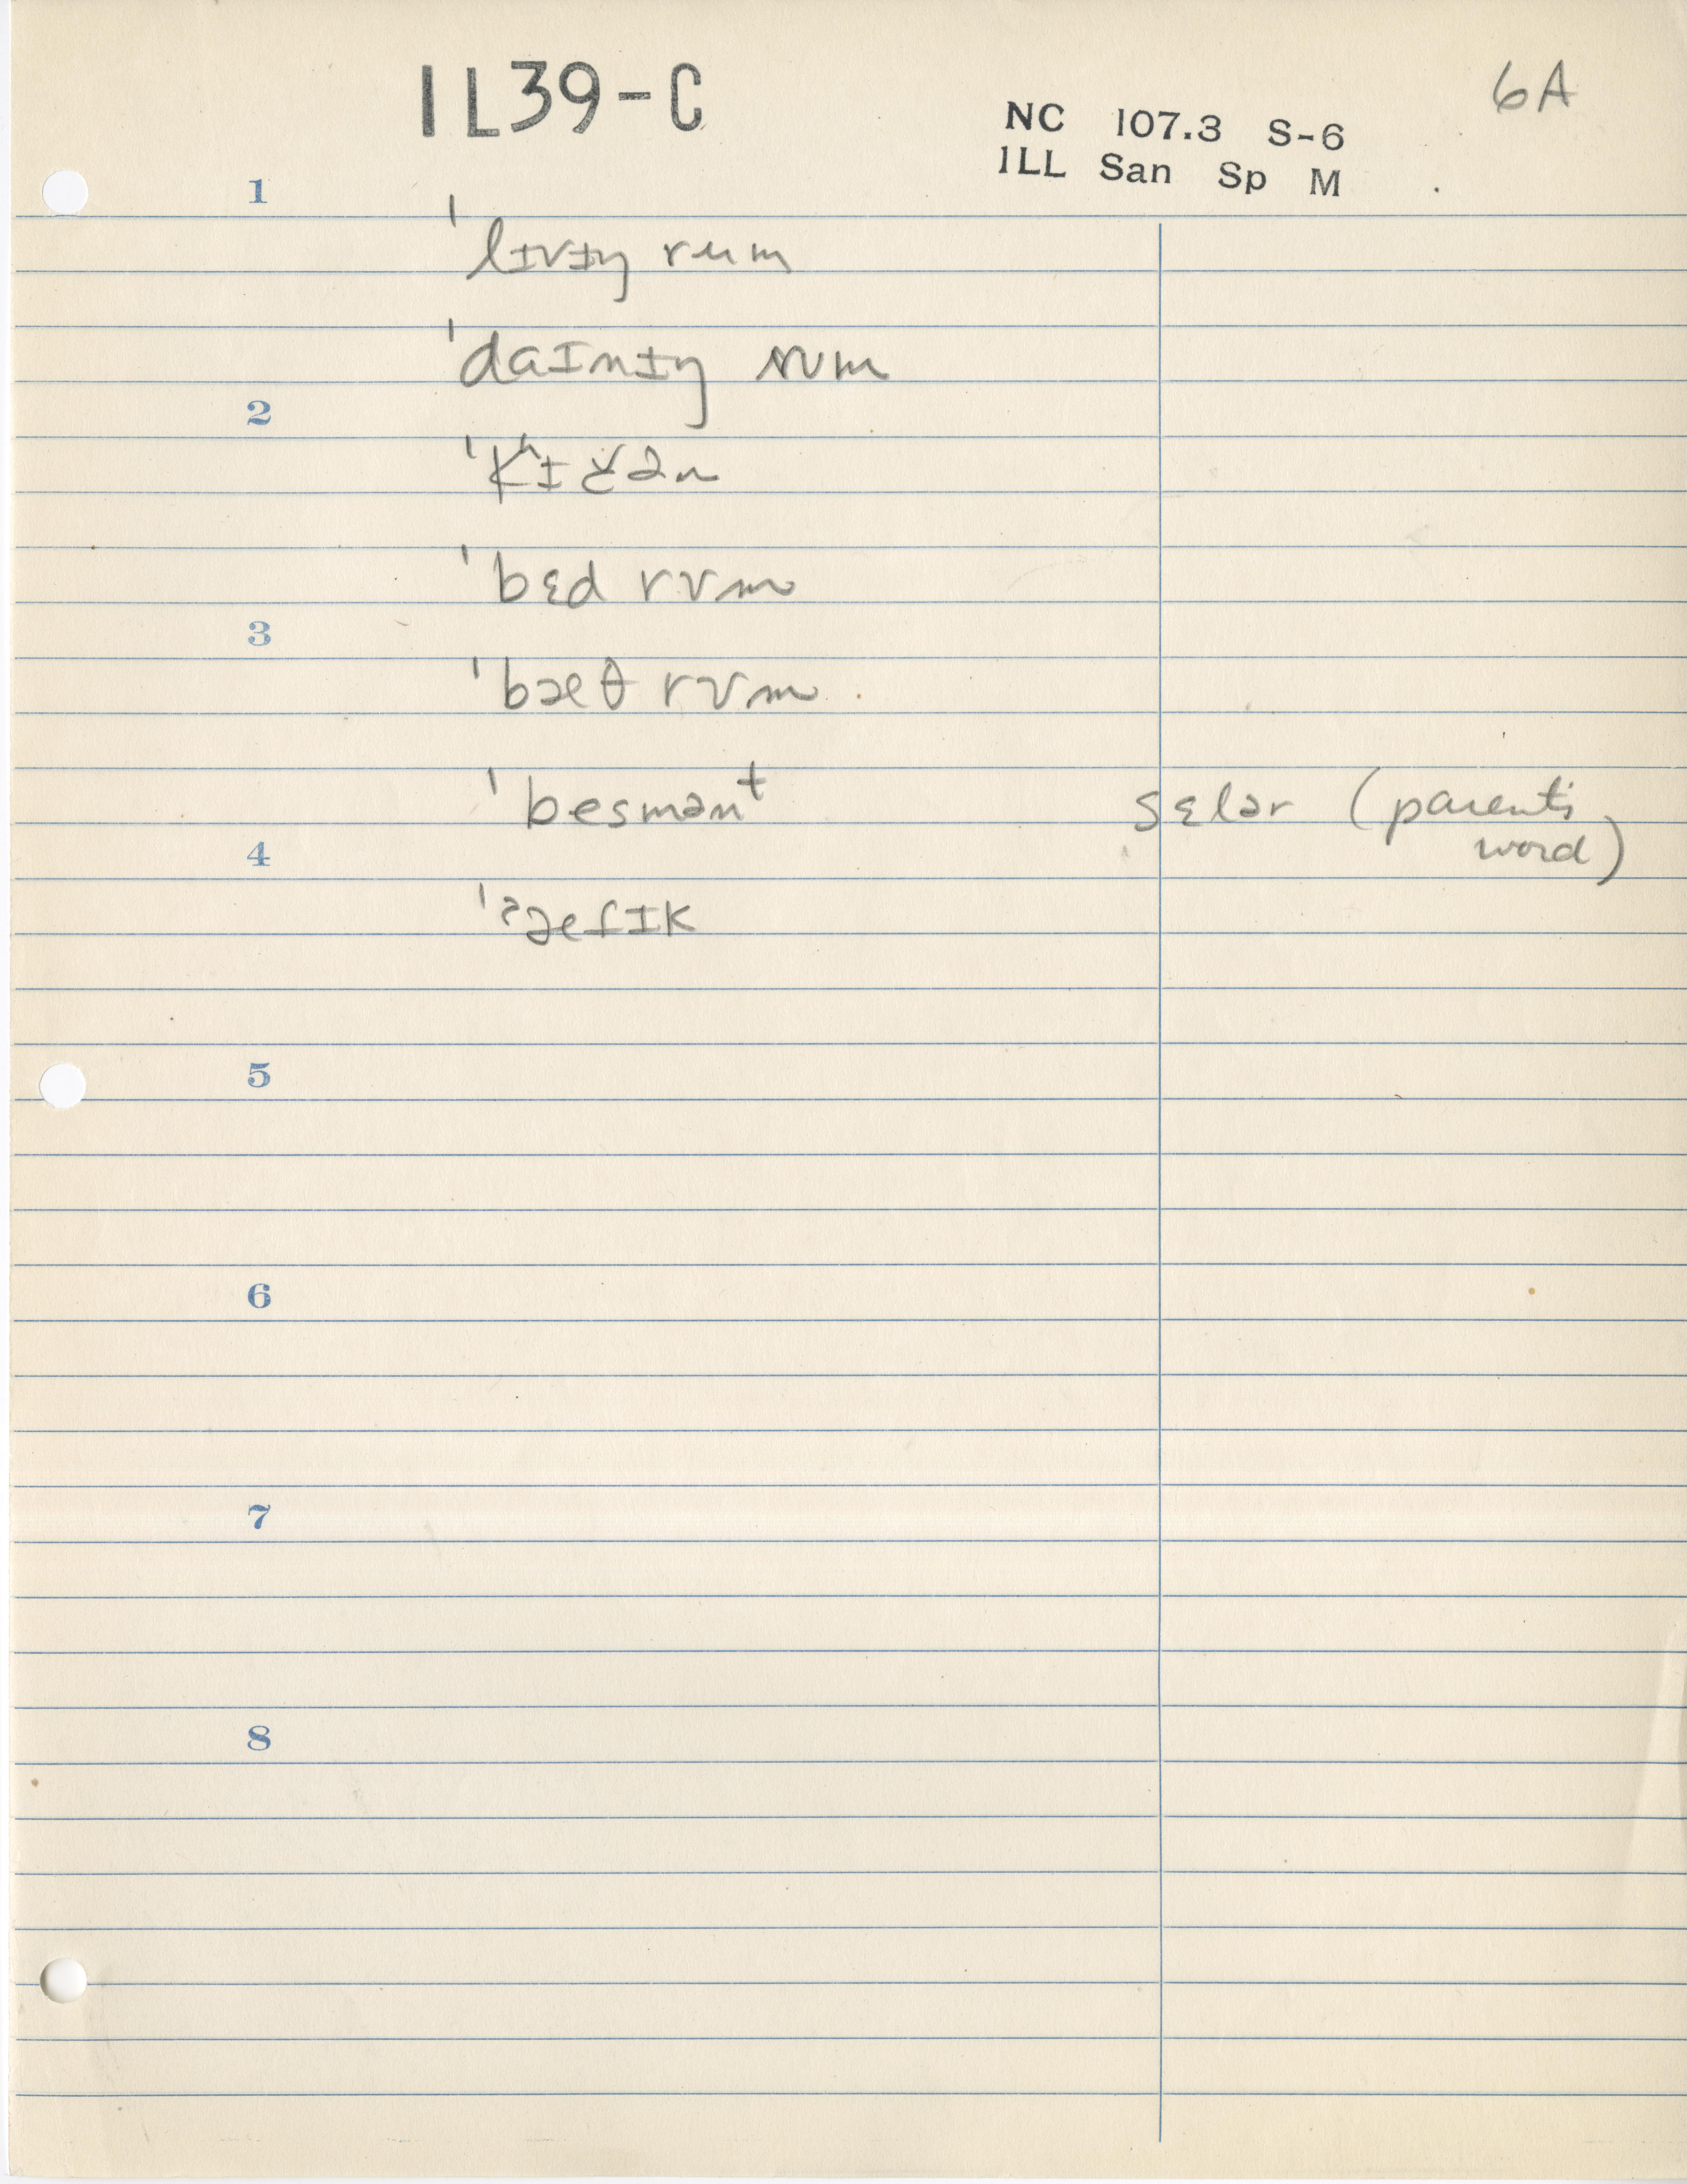 IL39-C
6A
NC 107.3 S-6
ILL San Sp M
1
ˈlɪvɪŋ rum
ˈdaɪnɪŋ rʊm
2
ˈkʰɪčən
ˈbɛd rʊm
3
ˈbæθ rʊm
ˈbesmənᵗ sɛlər (parents word)
4
ˈˀæfɪk
5
6
7
8